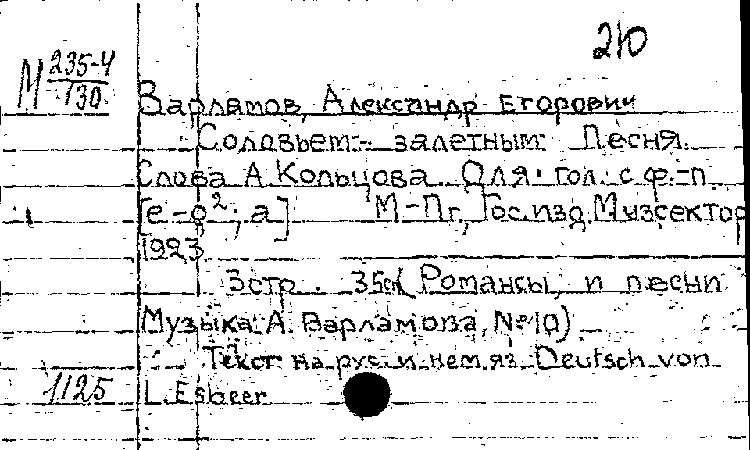 210
М 235-4/130
Варламов, Александр Егорович
Соловьем залетным. Песня.
Слова А. Кольцова. Для гол. с ф.-п.
[e-g²; a] М-Пг, Гос. изд. Музсектор
1923
3 стр. 35см (Романсы и песни
Музыка А. Варламова, № 10)
Текст на рус. и нем. яз. Deutsch von
1125 L. Esbeer